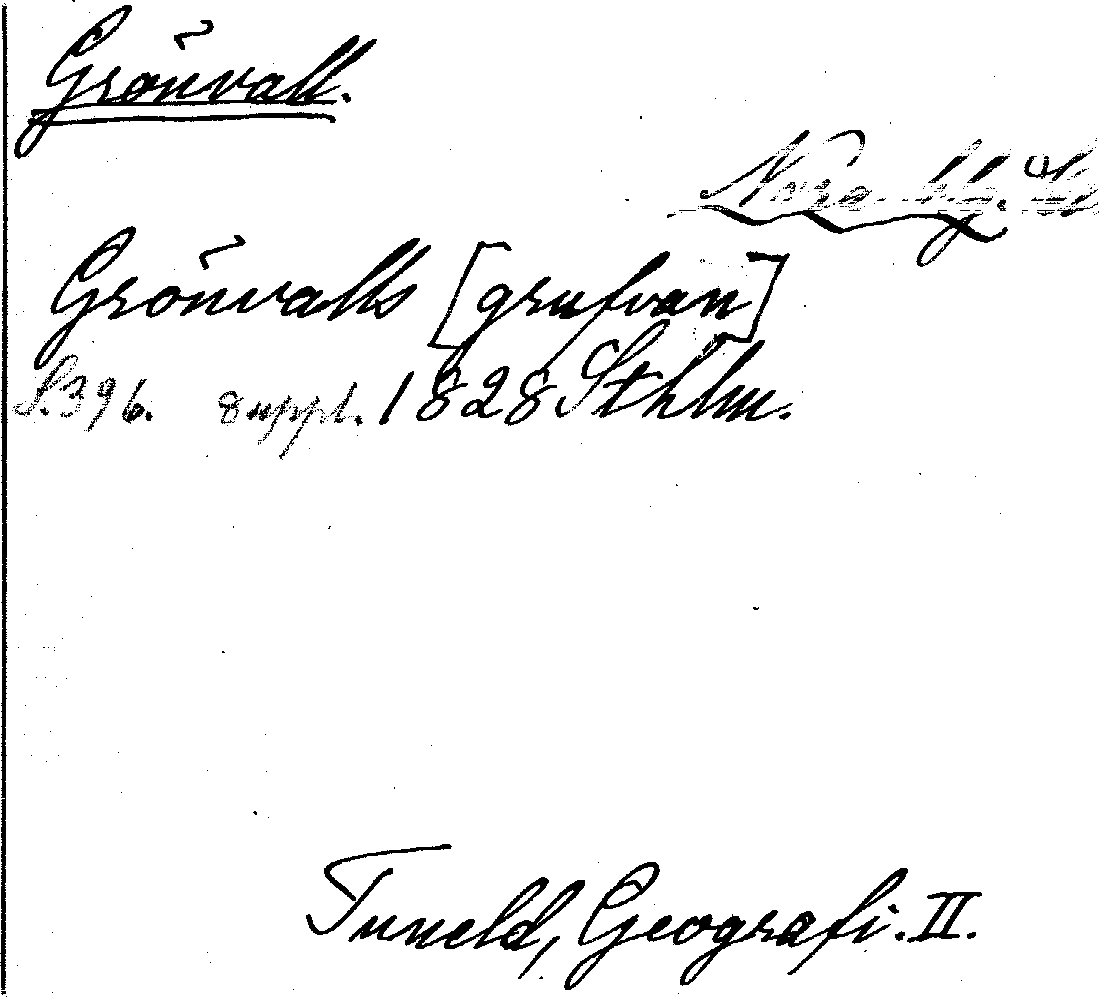 Grönvall.
Nora bg.
Grönvalls [grufvan]
S. 396. suppl. 1828 Sthlm.
Tuneld, Geografi. II.